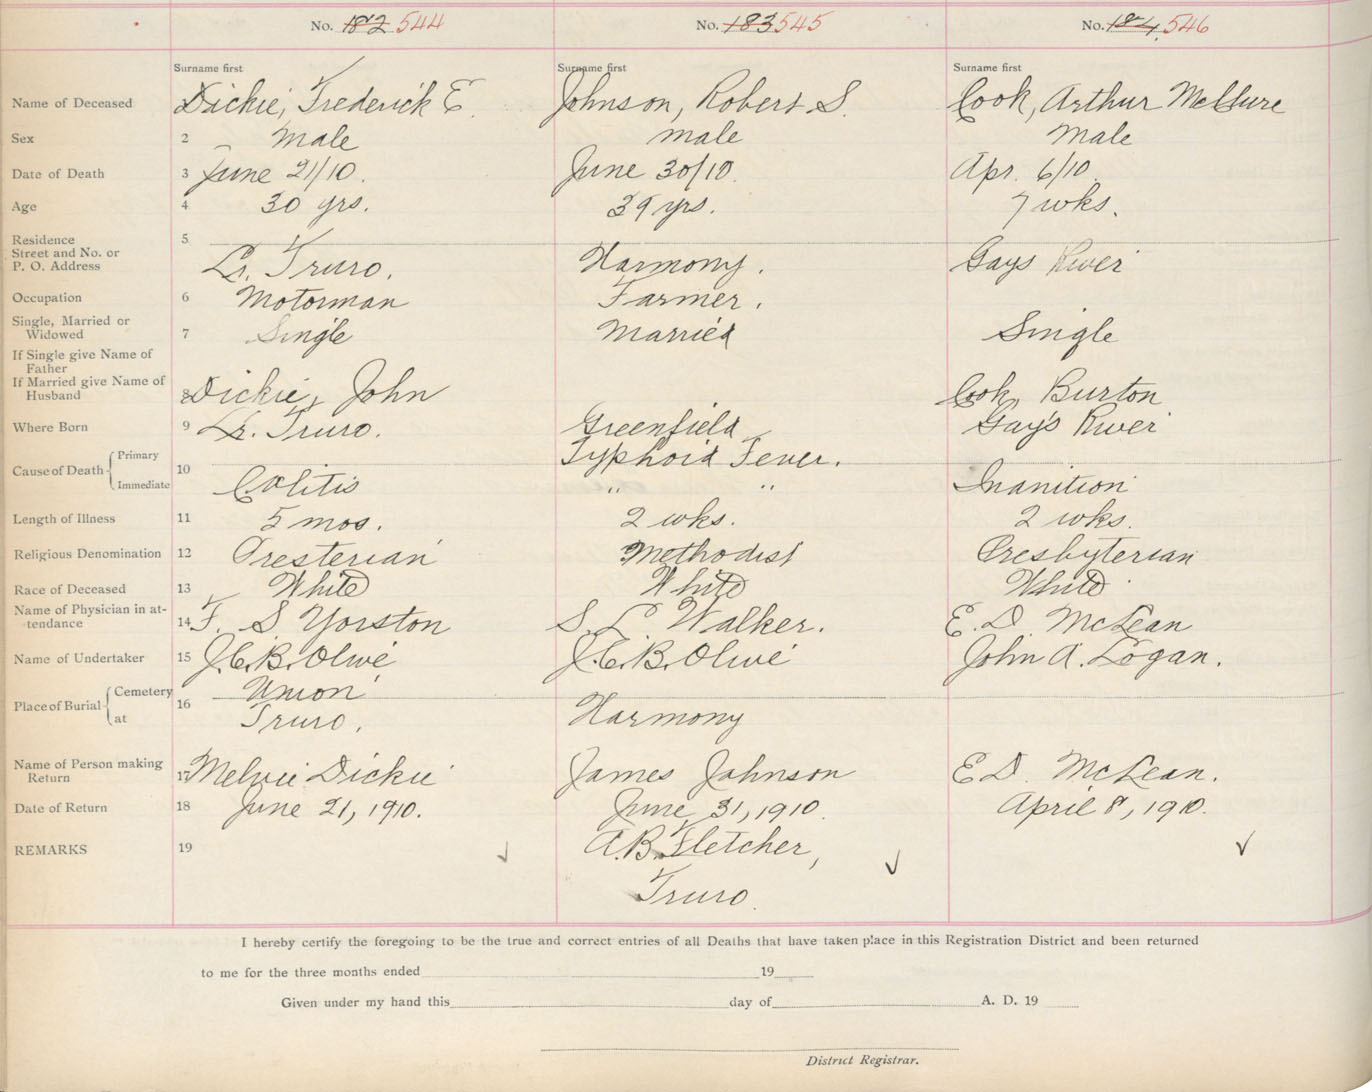 No. 182 544 No. 183 545 No. 184 546
Surname first Surname first Surname first
Name of Deceased Dickie, Frederick E. Johnson, Robert S. Cook, Arthur McClure
Sex 2 Male male Male
Date of Death 3 June 21/10. June 30/10. Apr. 6/10.
Age 4 30 yrs. 39 yrs. 7 wks.
Residence 5
Street and No. or
P. O. Address Lr. Truro. Harmony. Gays River
Occupation 6 Motorman Farmer.
Single, Married or
Widowed 7 Single Married Single
If Single give Name of
Father
If Married give Name of
Husband 8 Dickie, John Cook, Burton
Where Born 9 Lr. Truro. Greenfield Gay's River
Cause of Death Primary 10 Typhoid Fever.
Immediate Colitis " " Inanition
Length of Illness 11 5 mos. 2 wks. 2 wks.
Religious Denomination 12 Presterian Methodist Presbyterian
Race of Deceased 13 White White White
Name of Physician in at-
tendance 14 F. S Yorston S. L Walker. E. D. McLean
Name of Undertaker 15 J.C.B. Olive J.C.B. Olive John A. Logan.
Place of Burial Cemetery 16 Union
at Truro. Harmony
Name of Person making
Return 17 Melvie Dickie James Johnson E D. McLean.
Date of Return 18 June 21, 1910. June 31, 1910. April 8, 1910.
REMARKS 19 A.B. Fletcher,
Truro.
I hereby certify the foregoing to be the true and correct entries of all Deaths that have taken place in this Registration District and been returned
to me for the three months ended 19
Given under my hand this day of A. D. 19
District Registrar.